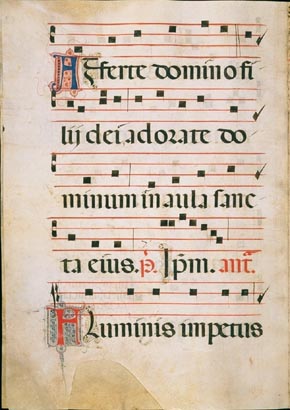 Afferte domino fi
lij dei adorate do
minum in aula sanc
ta eius. p̄. Ip̄m. añt.
Fluminis impetus